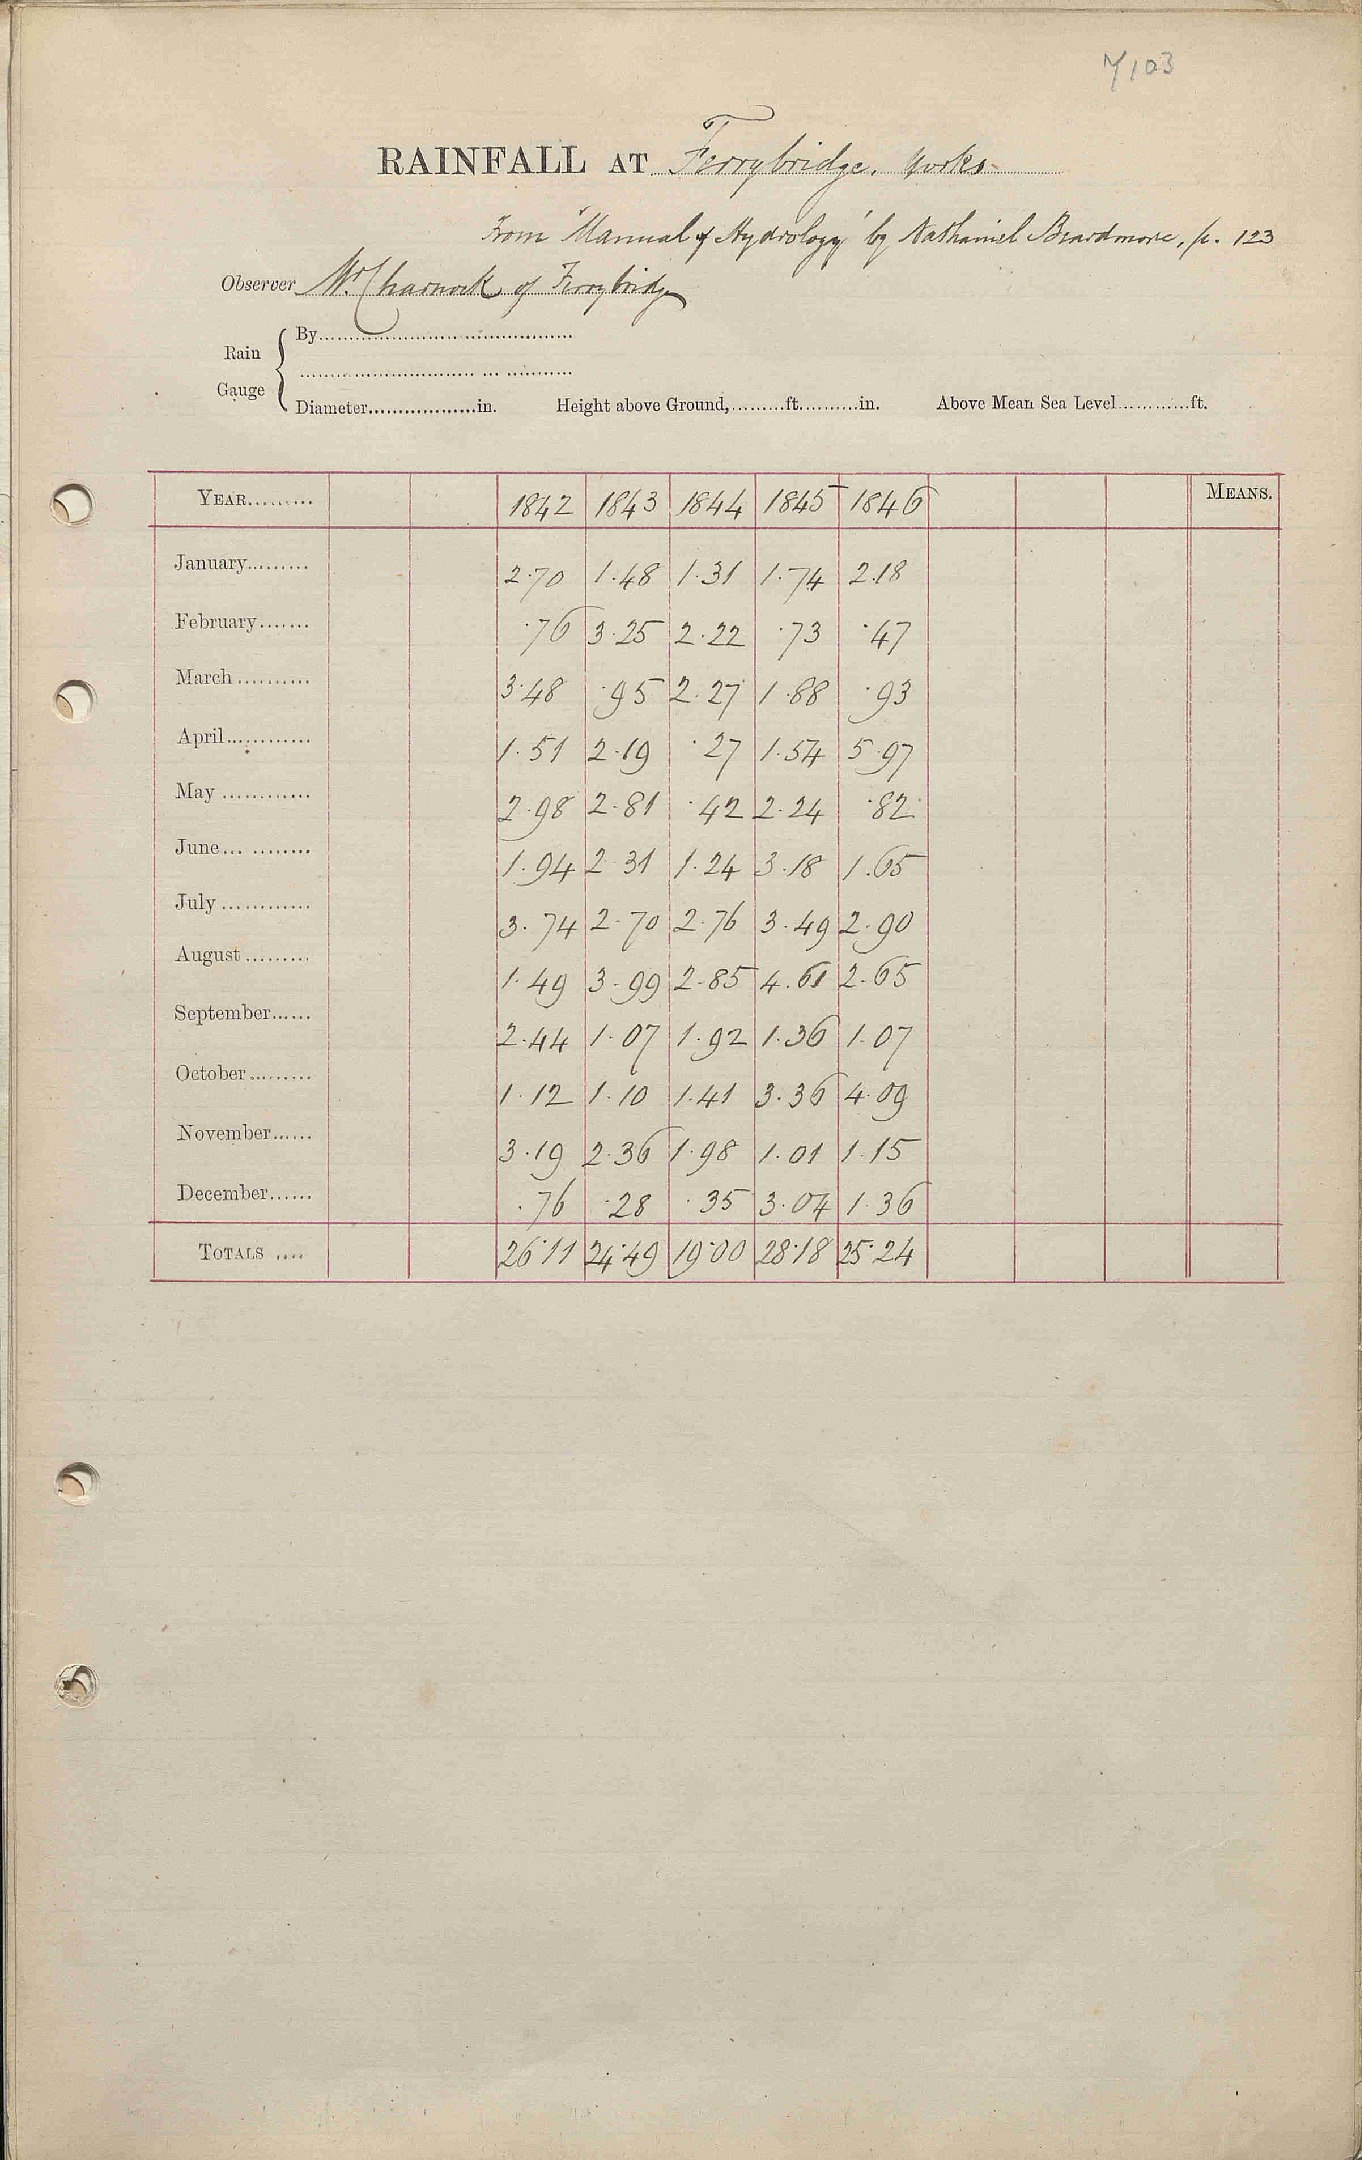 M103
RAINFALL AT Ferrybridge, Yorks
From "Manual of Hydrology" by Nathaniel Beardmore, p. 123
Observer Mr. Charnock of Ferrybridge
Rain Gauge
By
Diameter in. Height above Ground, ft. in. Above Mean Sea Level ft.
YEAR 1842 1843 1844 1845 1846 MEANS.
January 2.70 1.48 1.31 1.74 2.18
February .76 3.25 2.22 .73 .47
March 3.48 .95 2.27 1.88 .93
April 1.51 2.19 .27 1.54 5.97
May 2.98 2.81 .42 2.24 .82
June 1.94 2.31 1.24 3.18 1.65
July 3.74 2.70 2.76 3.49 2.90
August 1.49 3.99 2.85 4.61 2.65
September 2.44 1.07 1.92 1.36 1.07
October 1.12 1.10 1.41 3.36 4.09
November 3.19 2.36 1.98 1.01 1.15
December .76 .28 .35 3.04 1.36
TOTALS 26.11 24.49 19.00 28.18 25.24